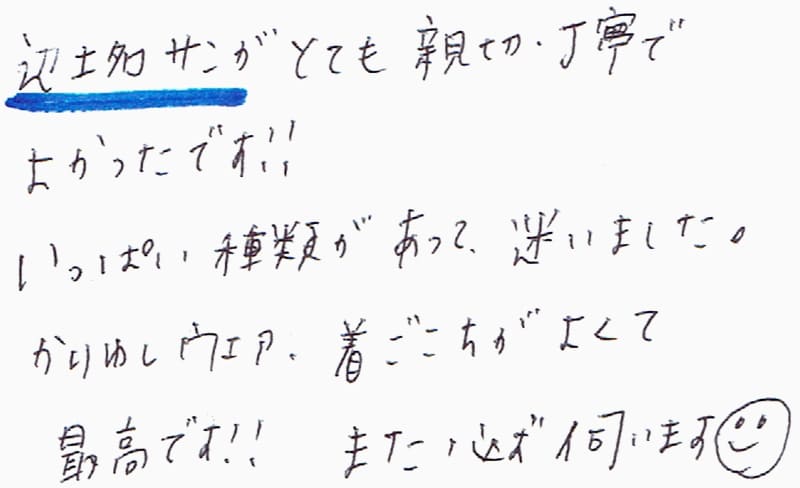 辺土名サンがとても親切、丁寧で
よかったです!!
いっぱい種類があって、迷いました。
かりゆしウェア、着ごこちがよくて
最高です!! また、必ず伺います